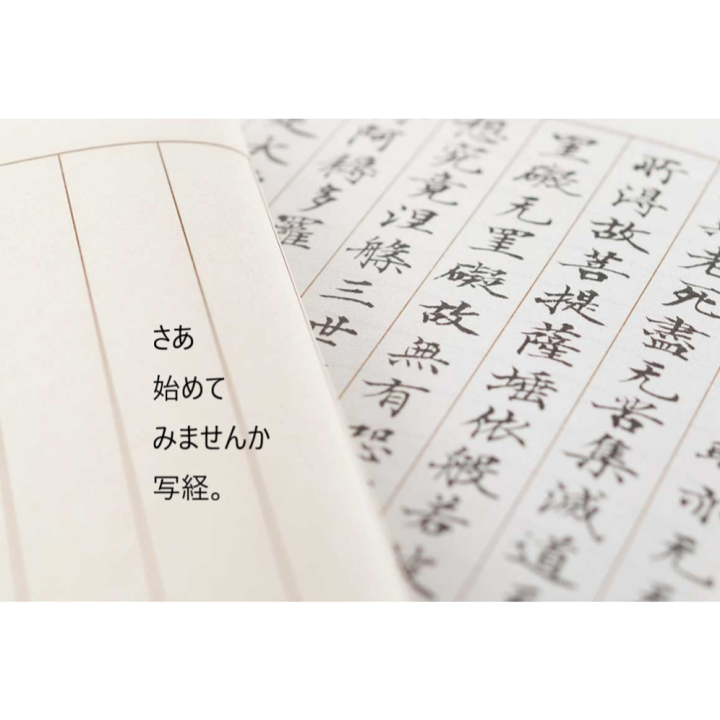 さあ
始めて
みませんか
写経。
亦无
老死盡无苦集滅道
所得故菩提薩埵依般若
罣礙无罣礙故無有恐
想究竟涅槃三世
阿耨多羅
大